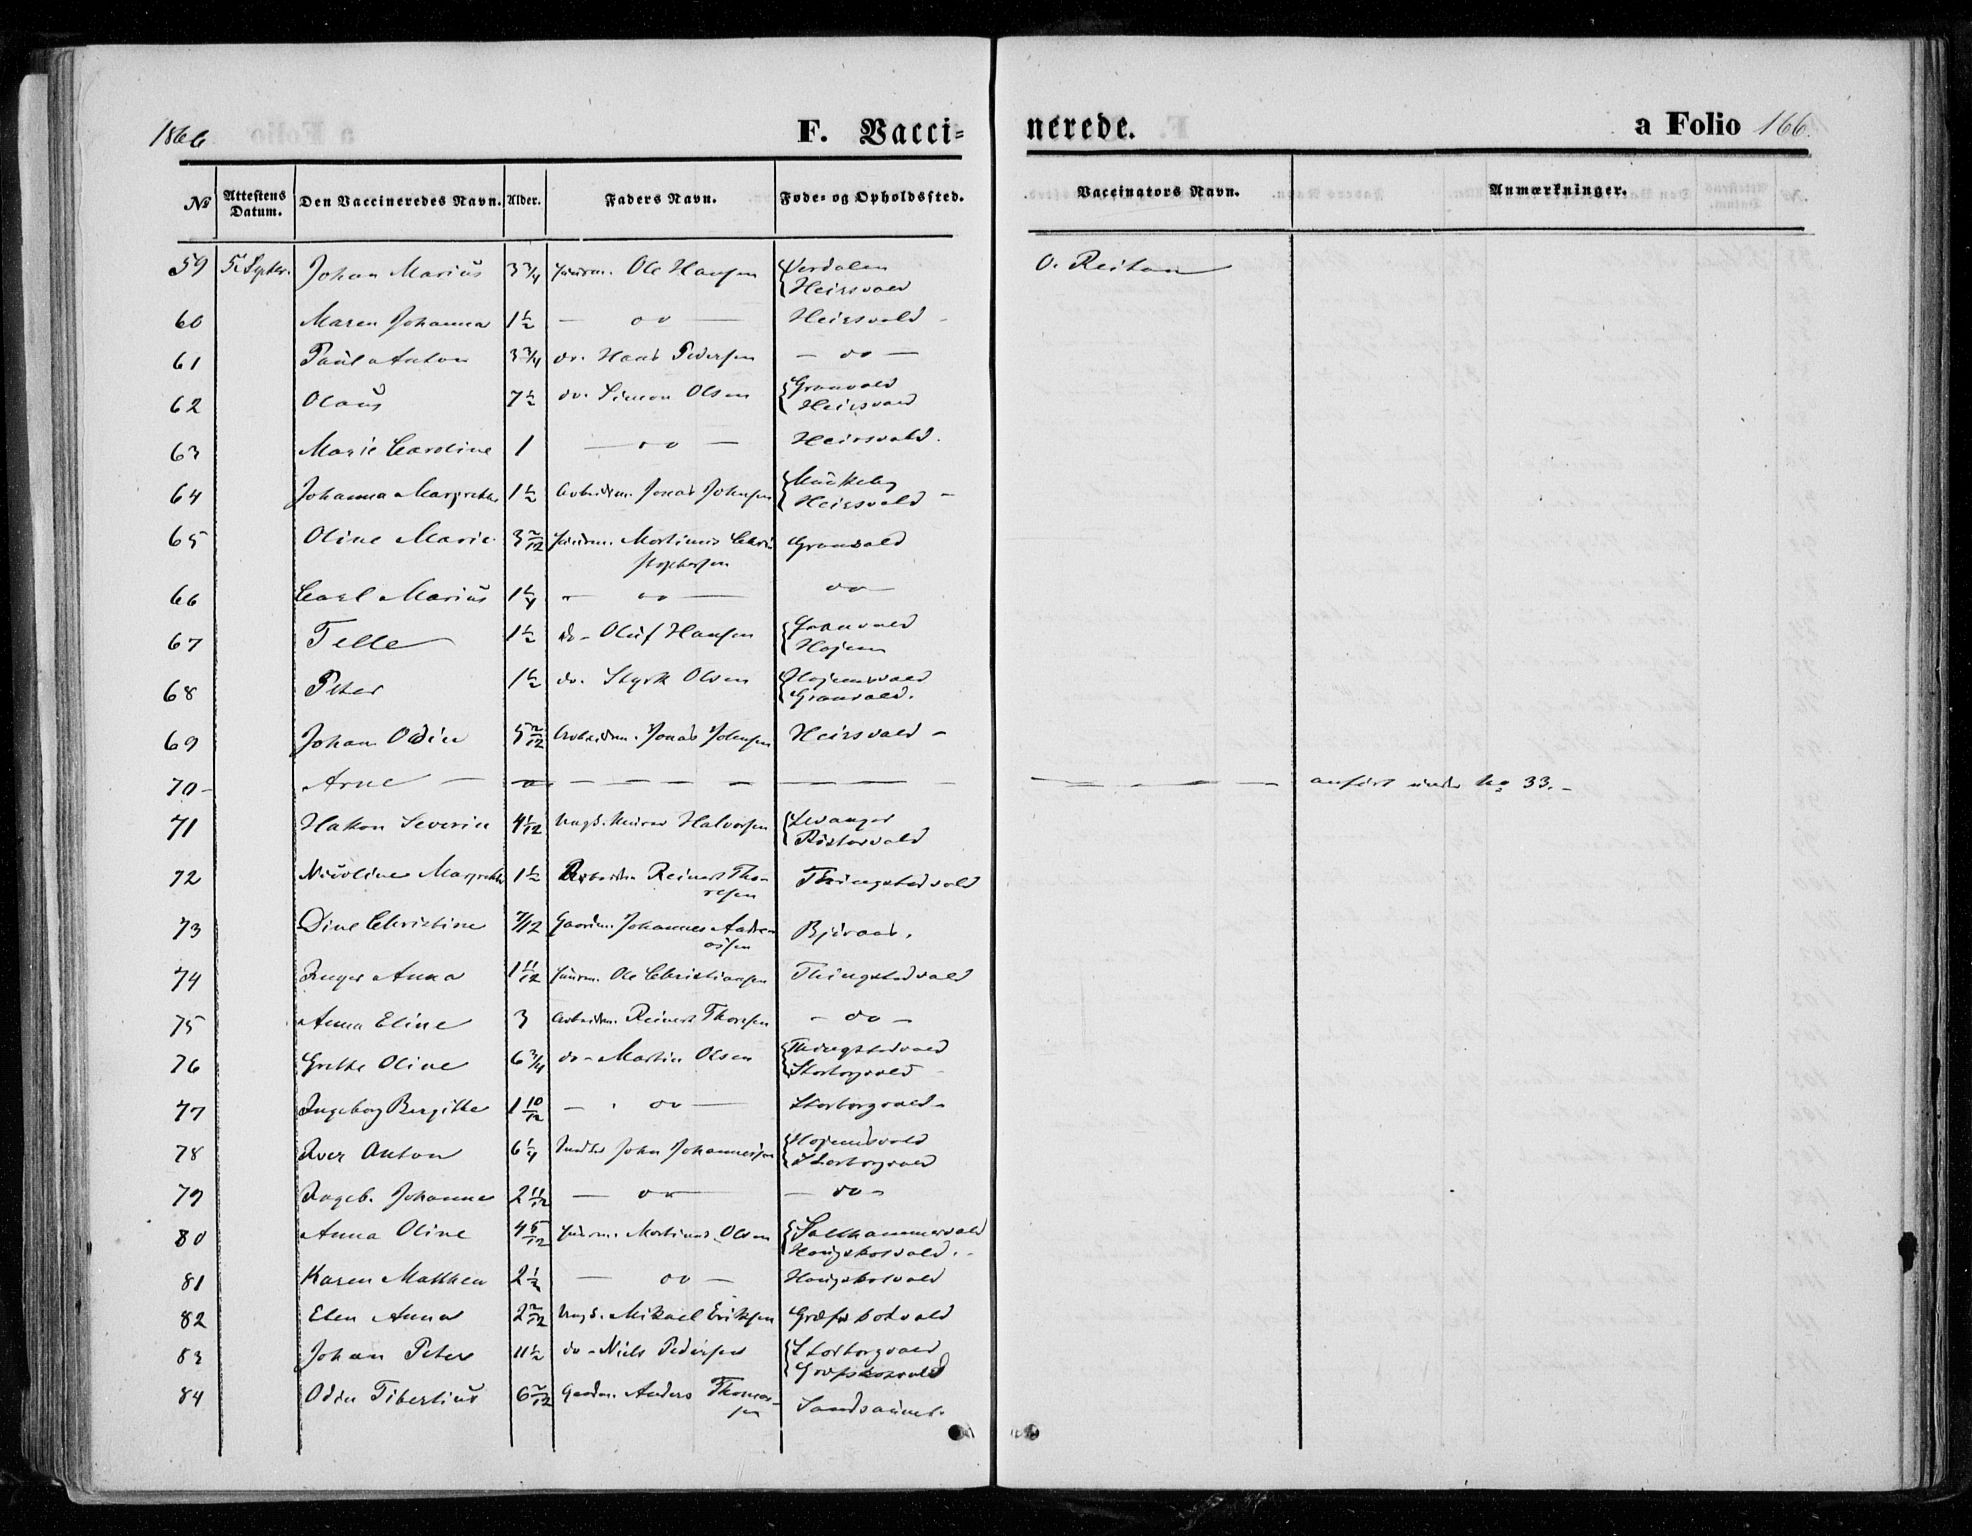 1866
F. Vacci=
nerede.
a Folio 166.
No
Attestens Datum.
Den Vaccineredes Navn.
Alder.
Faders Navn.
Føde= og Opholdssted.
Vaccinators Navn.
Anmærkninger.
59 5 Septbr. Johan Marius 3 3/4 Huusm. Ole Hansen {Verdalen O. Reitan
Heirsvald
60 Maren Johanna 1 1/2 — do — Heirsvald
61 Paul Anton 3 3/4 do. Hans Pedersen — do —
62 Olaus 7 1/2 do. Simon Olsen {Granvald
Heirsvald
63 Marie Caroline 1 — do — Heirsvald.
64 Johanna Margrethe 1 1/2 Arbeidsm. Jonas Johnsen
Heirsvald
65 Oline Marie 3 2/12 Huusm. Mortinus Chri- Granvald
stophersen
66 Carl Marius 1 1/4 — do — do
67 Telle 1 1/2 do - Oluf Hansen {Granvald
Hojem
68 Peter 1 1/2 do. Styrk Olsen {Hojemsvald
Granvald.
69 Johan Odin 5 2/12 Arbeidsm. Jonas Johnsen Heirsvald
70 Arne — anført under No 33.
71 Hakon Severin 4 1/12 Ungk. Halvorsen {Levanger
72 Nicoline Margrethe 1 1/2 Arbeidsm Reinert Tho- Thingstadvald
resen
73 Dine Christine 7/12 Gaardm. Johannes Andre-
assen
74 Inger Anna 1 11/12 Huusm. Ole Christiansen Thingstadvald
75 Anna Eline 3 Arbeidsm. Reinert Thoresen — do —
76 Grethe Oline 6 3/4 do - Martin Olsen {Thingstadvald
Storborgvald
77 Ingeborg Bergitte 1 10/12 — do — Storborgvald
78 Iver Anton 6 1/4 John Johannessen {Hojemsvald
Storborgvald
79 Ingeb. Johanna 2 11/12 — do — — do —
80 Anna Oline 4 5/12 Huusm. Mortinus Olsen {Salthammervald
Haugskotvald.
81 Karen Mathea 2 1/2 — do — Haugskotvald
82 Elen Anna 2 2/12 Ungk. Mikael Eriksen
83 Johan Peter 11 1/2 do - Niels Pedersen {Storborgvald
84 Odin Tibertius 6 2/12 Gaardm. Anders Thomas-
sen